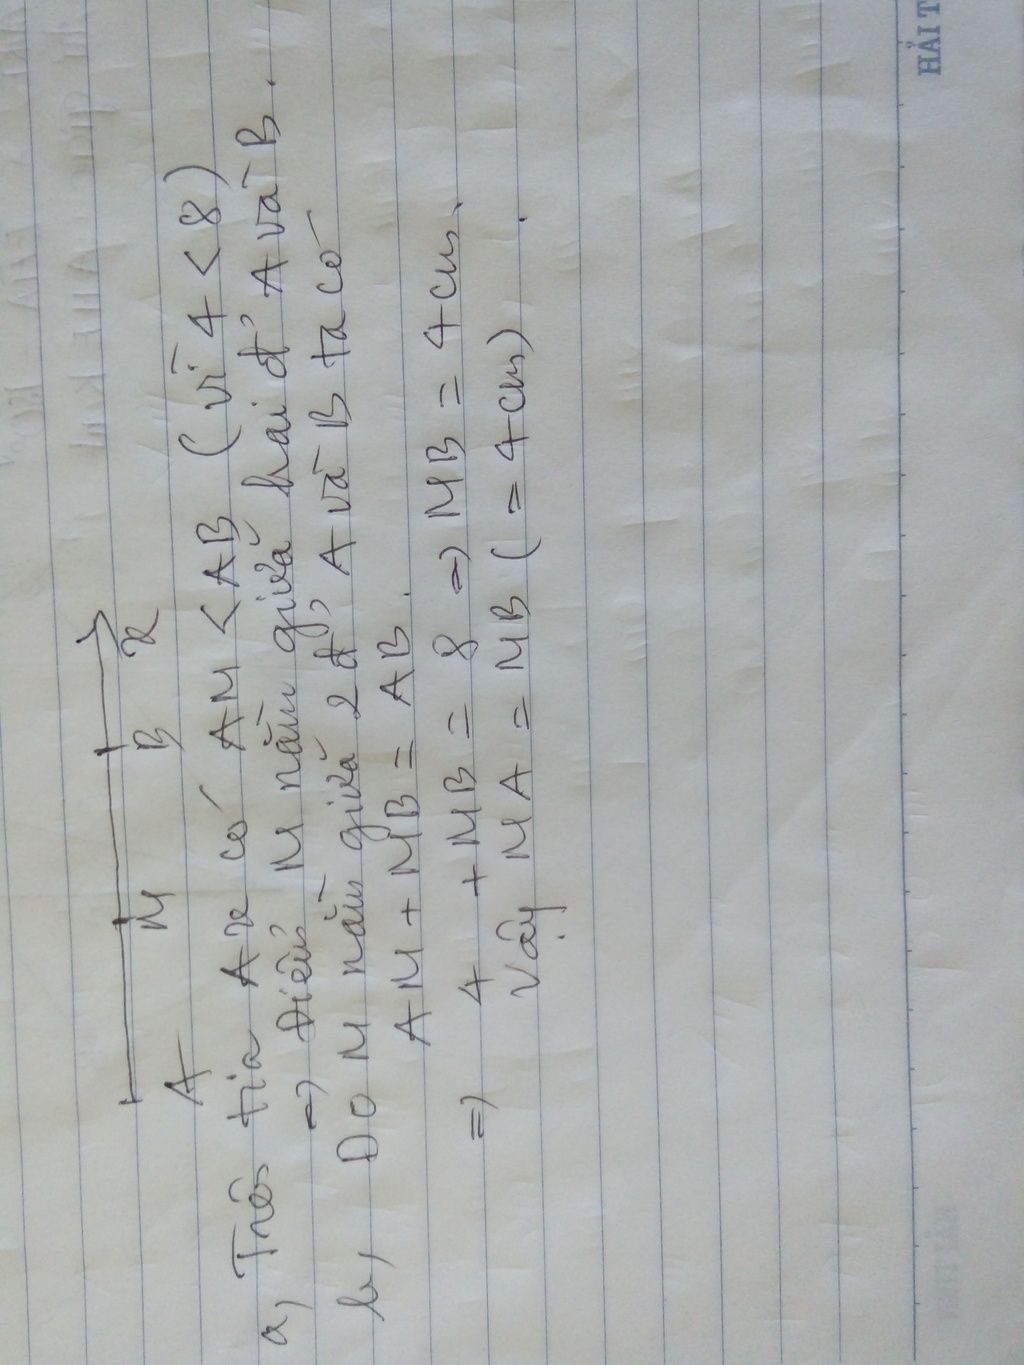 A M B x
a, Trên tia Ax có AM < AB (vì 4 < 8)
=> Điểm M nằm giữa hai đ' A và B.
b, Do M nằm giữa 2 đ' A và B ta có
AM + MB = AB.
=> 4 + MB = 8 => MB = 4cm.
Vậy MA = MB (= 4cm).
HẢI T